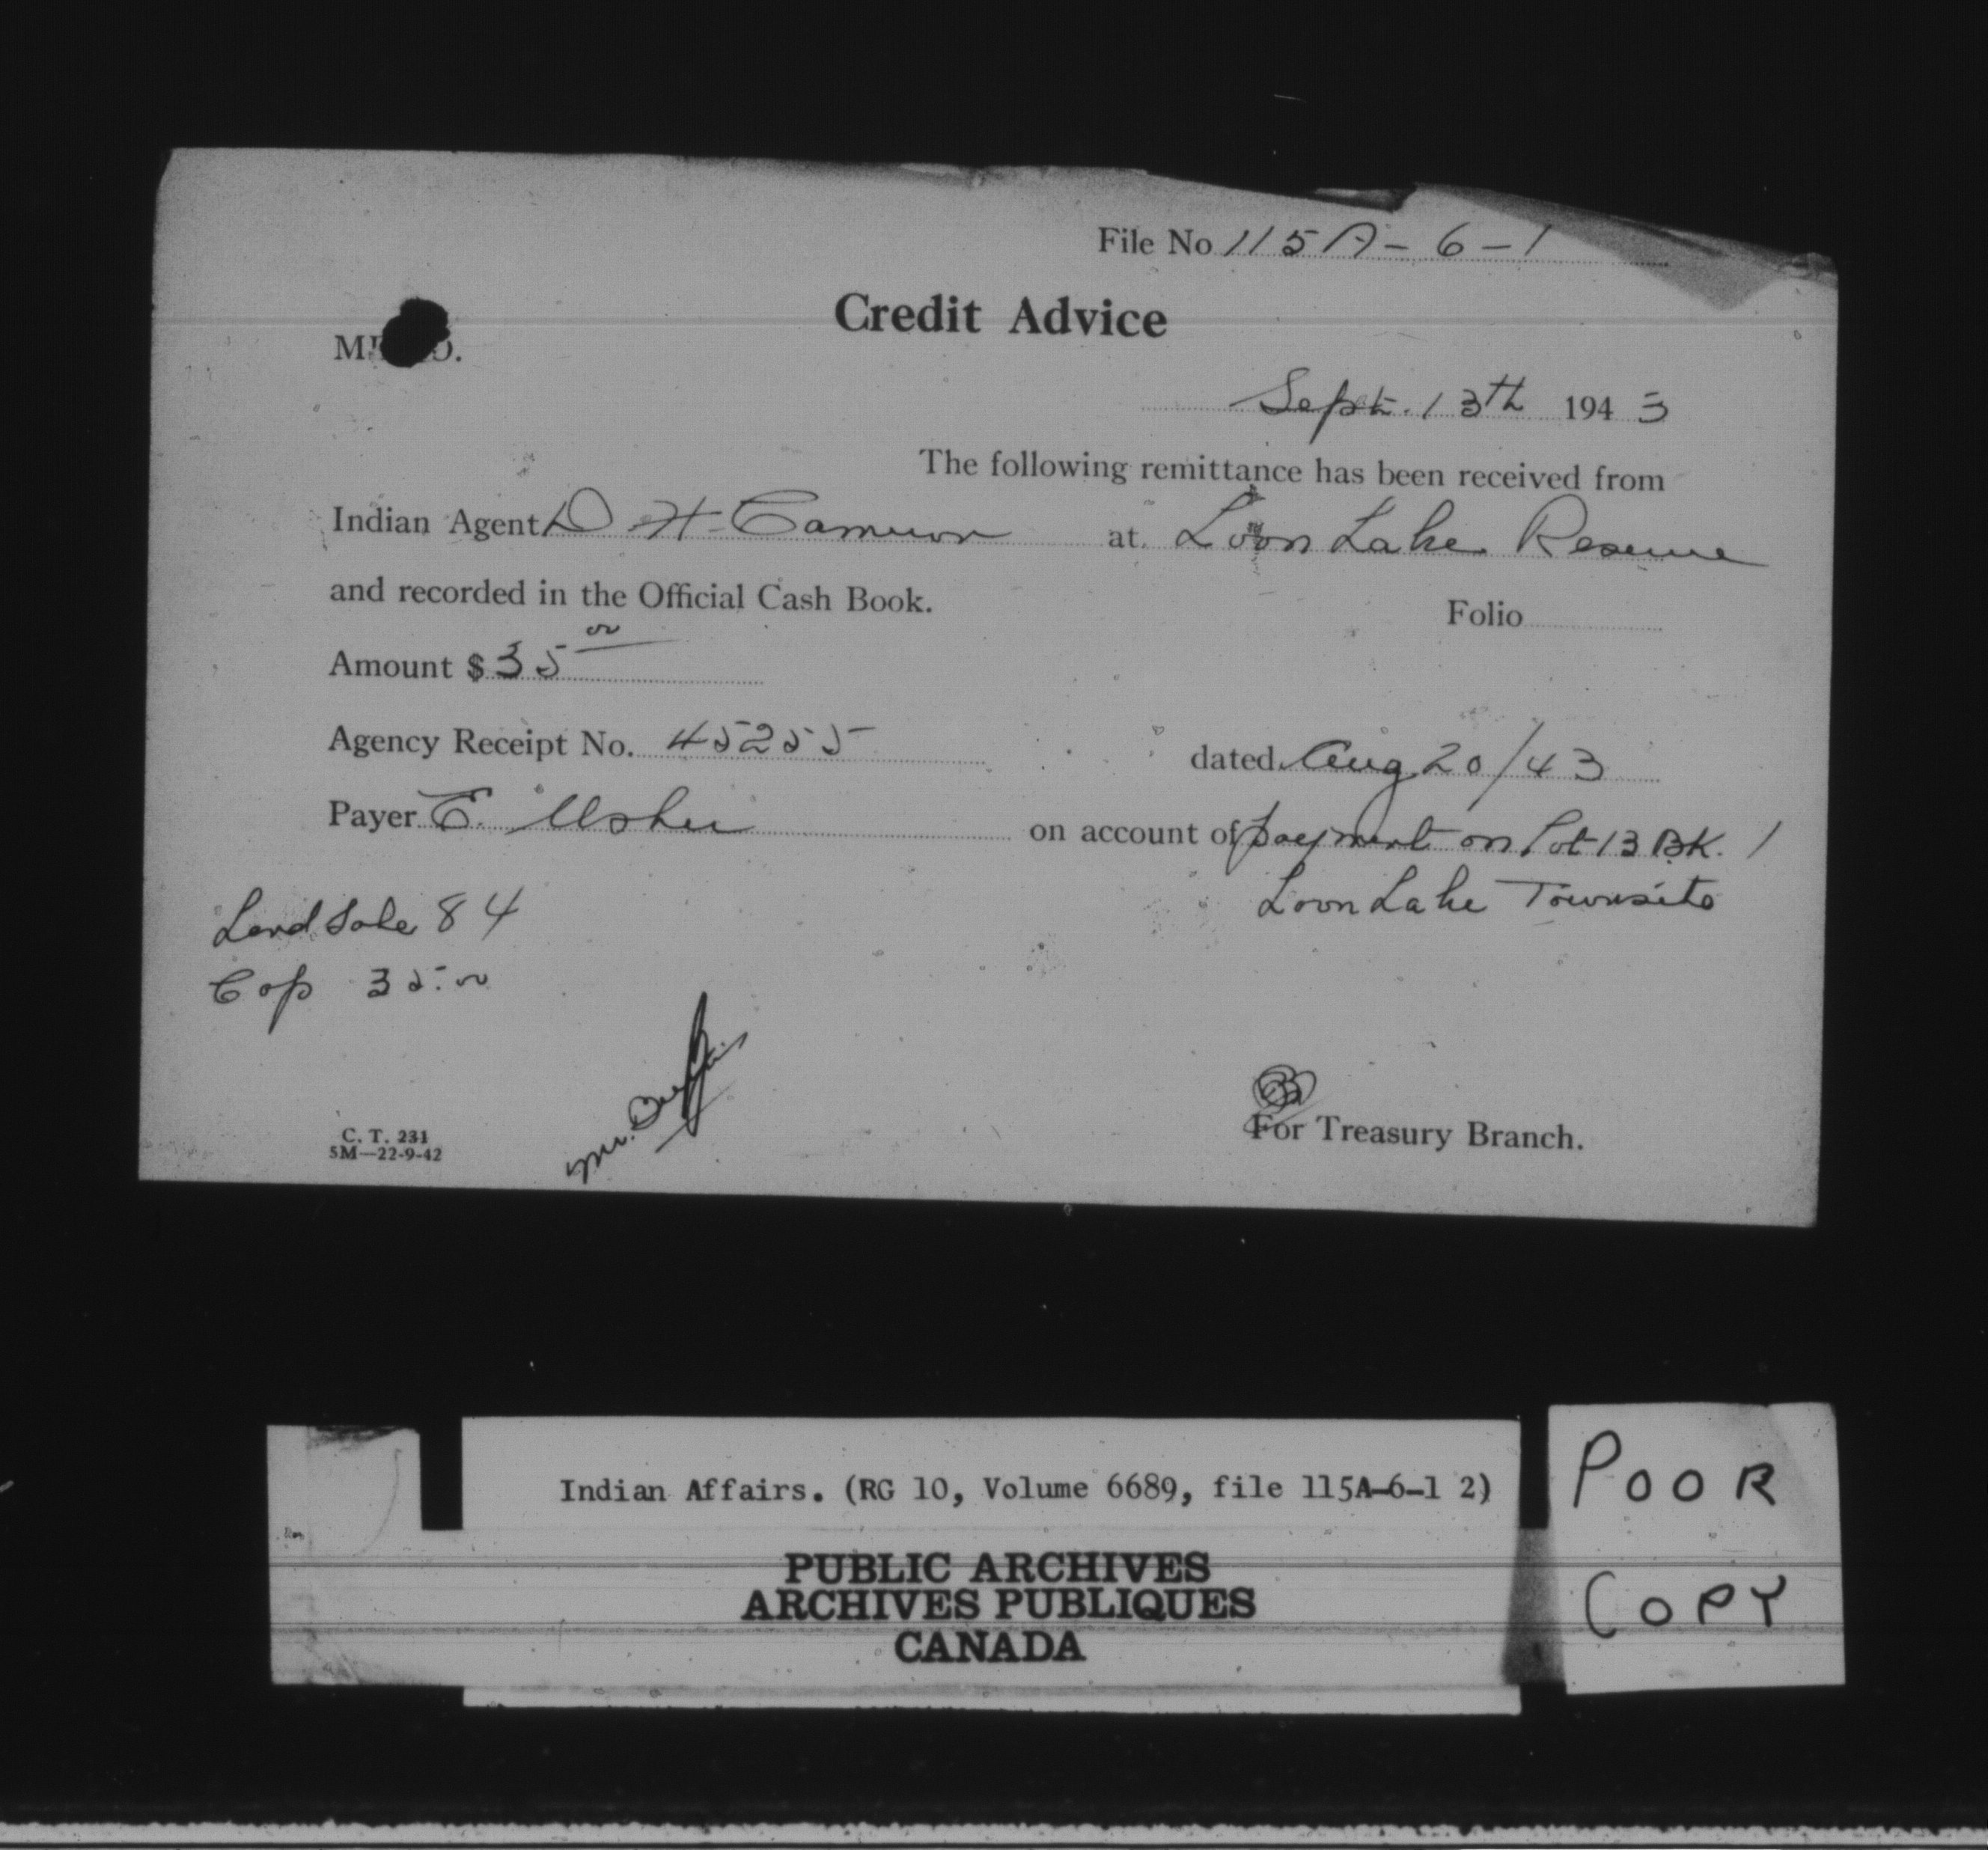 File No 115A-6-1
Credit Advice
MEMO.
Sept. 13th 1943
The following remittance has been received from
Indian Agent D. H. Cameron at Loon Lake Reserve
and recorded in the Official Cash Book.
Folio
Amount $ 35 00
Agency Receipt No. 45255 dated Aug 20/43
Payer E. Usher on account of payment on Lot 13 BK. 1
Loon Lake Townsite
Land Sale 84
Cap 35.00
Mr.
For Treasury Branch.
C. T. 231
5M—22-9-42
Indian Affairs. (RG 10, Volume 6689, file 115A-6-1 2)
PUBLIC ARCHIVES
ARCHIVES PUBLIQUES
CANADA
POOR
COPY